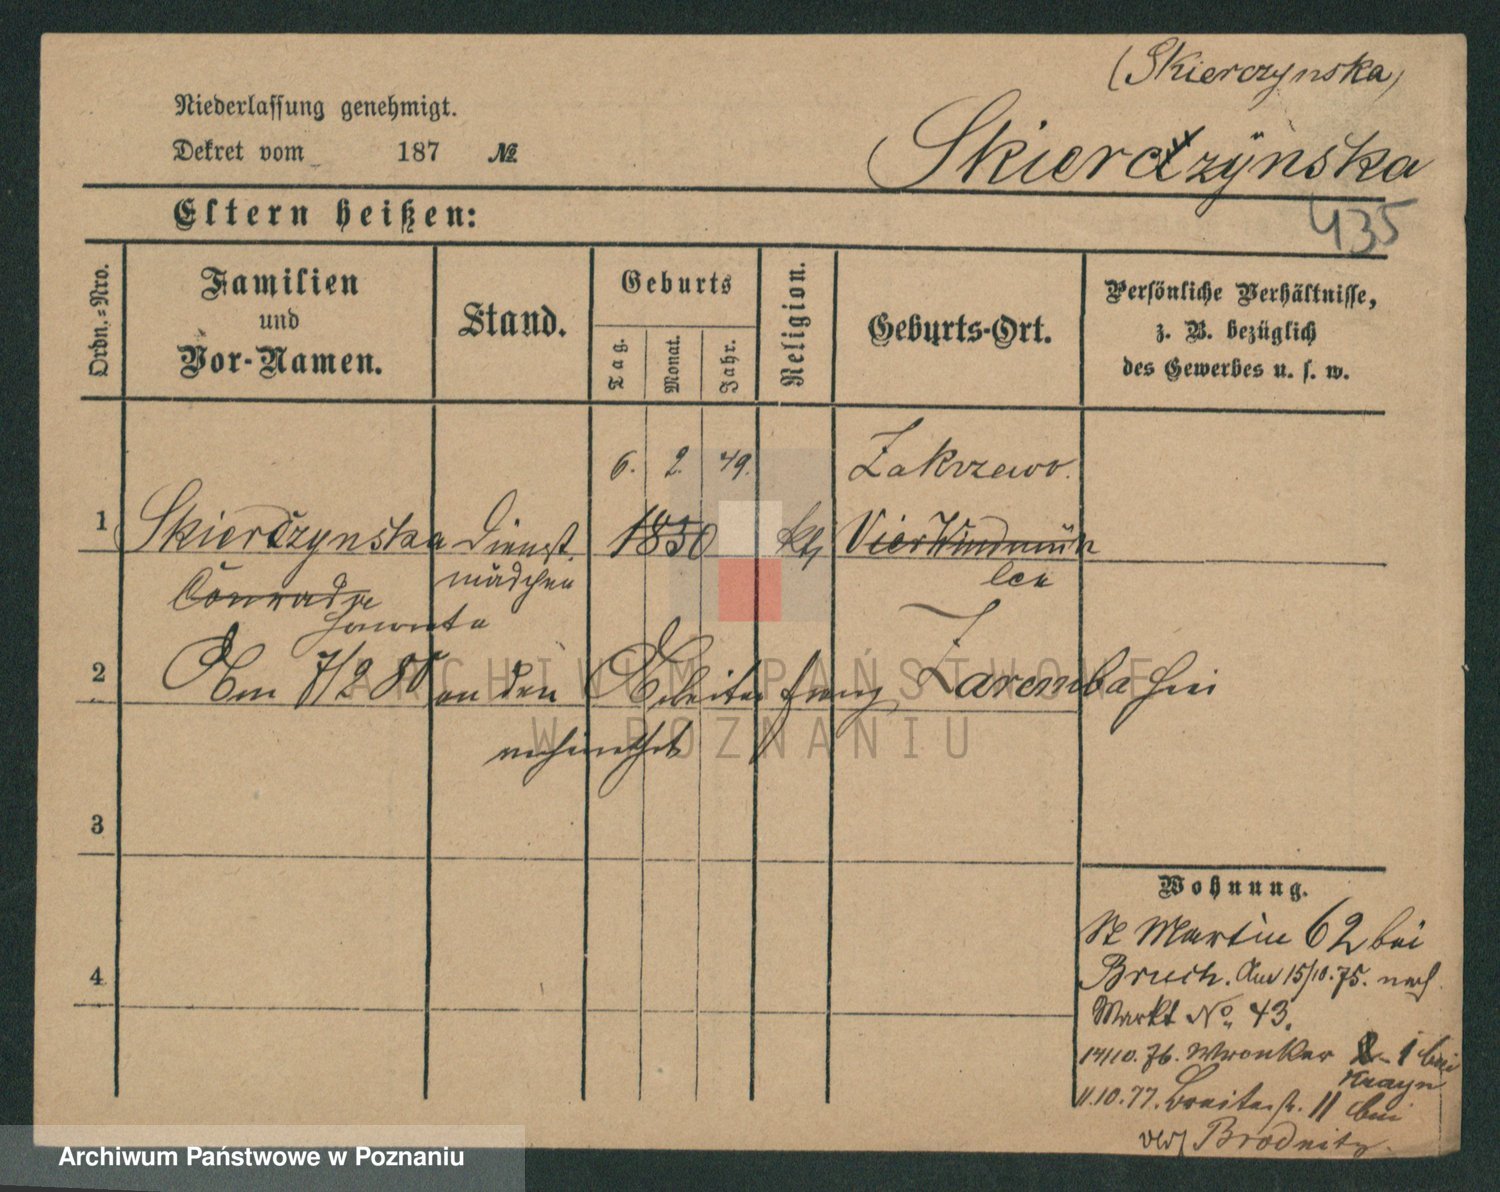 (Skierczynska)
Niederlassung genehmigt.
Dekret vom 187 №
Skierczynska
435
Eltern heißen:
Ordn.-Nro.
Familien
und
Vor-Namen.
Stand.
Geburts
Tag.
Monat.
Jahr.
Religion.
Geburts-Ort.
Persönliche Verhältnisse,
z. B. bezüglich
des Gewerbes u. s. w.
6. 2. 49. Zakrzewo.
1 Skierczynska Dienst 1850 kth Vier Windmüh
mädchen len
Conradse
2 Am 7/2 80 an den Arbeiter Franz Zaremba hier
verheirathet
3
4
Wohnung.
St Martin 62 bei
Bruch. Am 15/10.75. nach
Markt No. 43.
14/10.76. Wronker 1 bei
Krayn
11.10.77. Breitestr. 11 bei
Brodnitz.
ARCHIWUM PAŃSTWOWE
W POZNANIU
Archiwum Państwowe w Poznaniu